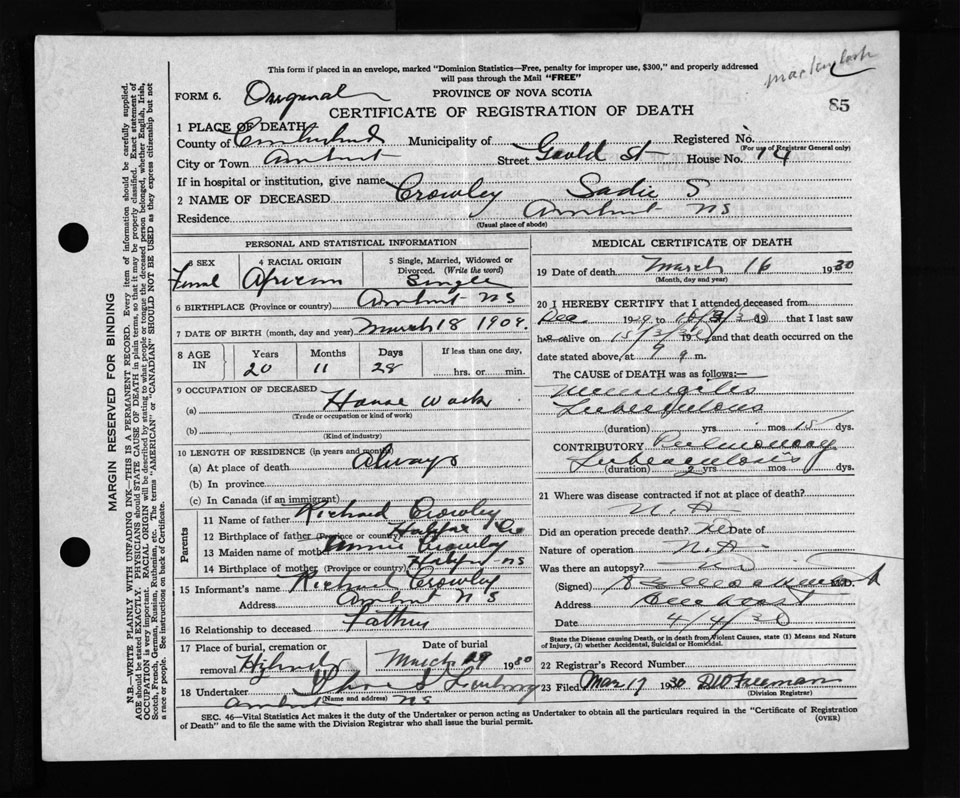 This form if placed in an envelope, marked "Dominion Statistics—Free, penalty for improper use, $300," and properly addressed
will pass through the Mail "FREE"
FORM 6. Original PROVINCE OF NOVA SCOTIA
85
CERTIFICATE OF REGISTRATION OF DEATH
1 PLACE OF DEATH
County of Cumberland Municipality of Registered No.
(For use of Registrar General only)
City or Town Amherst Street Gould St House No. 14
If in hospital or institution, give name
2 NAME OF DECEASED Crowley Sadie S
Residence Amherst NS
(Usual place of abode)
PERSONAL AND STATISTICAL INFORMATION
3 SEX 4 RACIAL ORIGIN 5 Single, Married, Widowed or Divorced. (Write the word)
Femal African Single
6 BIRTHPLACE (Province or country) Amherst NS
7 DATE OF BIRTH (month, day and year) March 18 1909.
8 AGE IN Years Months Days If less than one day,
20 11 28 hrs. or min.
9 OCCUPATION OF DECEASED
(a) House Work
(Trade or occupation or kind of work)
(b)
(Kind of industry)
10 LENGTH OF RESIDENCE (in years and months)
(a) At place of death always
(b) In province
(c) In Canada (if an immigrant)
Parents
11 Name of father Richard Crowley
12 Birthplace of father (Province or country) Halifax
13 Maiden name of mother Annie
14 Birthplace of mother (Province or country) NS
15 Informant's name Richard Crowley
Address Amherst N S
16 Relationship to deceased Father
17 Place of burial, cremation or removal Date of burial
March 1930
18 Undertaker
(Name and address)
Amherst NS
MEDICAL CERTIFICATE OF DEATH
19 Date of death March 16 1930
(Month, day and year)
20 I HEREBY CERTIFY that I attended deceased from
Dec 1929 to 16/3/30 19 that I last saw
h alive on 15/3/30 19 and that death occurred on the
date stated above, at 9 m.
The CAUSE OF DEATH was as follows:—
Meningitis
Tuberculous
(duration) yrs mos 15 dys.
CONTRIBUTORY Pulmonary
Tuberculosis
(duration) 2 yrs mos. dys.
21 Where was disease contracted if not at place of death?
N.A.
Did an operation precede death? No Date of
Nature of operation N.A.
Was there an autopsy? No
(Signed) M.D.
Address Amherst
Date 4/4/30
State the Disease causing Death, or in death from Violent Causes, state (1) Means and Nature
of Injury, (2) whether Accidental, Suicidal or Homicidal.
22 Registrar's Record Number
23 Filed Mar 17 1930 Freeman
(Division Registrar)
SEC. 46—Vital Statistics Act makes it the duty of the Undertaker or person acting as Undertaker to obtain all the particulars required in the "Certificate of Registration
of Death" and to file the same with the Division Registrar who shall issue the burial permit.
(OVER)
MARGIN RESERVED FOR BINDING
N.B.—WRITE PLAINLY WITH UNFADING INK—THIS IS A PERMANENT RECORD. Every item of information should be carefully supplied.
AGE should be stated EXACTLY. PHYSICIANS should STATE CAUSE OF DEATH in plain terms, so that it may be properly classified. Exact statement of
OCCUPATION is very important. RACIAL ORIGIN will be described by stating to what people or tongue the deceased person belonged, whether English, Irish,
Scotch, French, German, Russian, Ruthenian, etc. The terms "AMERICAN" or "CANADIAN" SHOULD NOT BE USED as they express citizenship but not
a race or people. See instructions on back of Certificate.